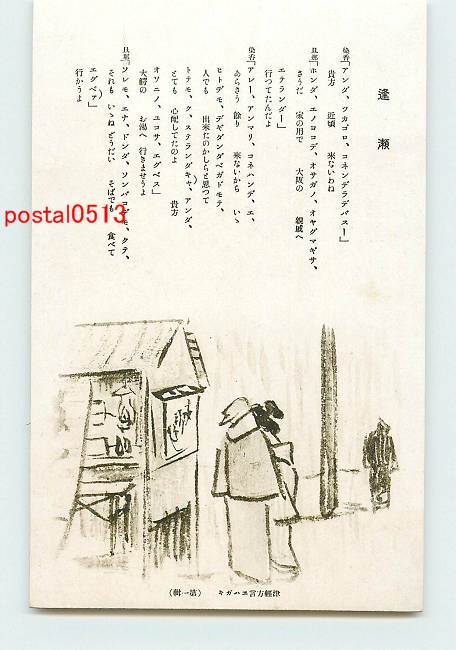 逢瀬
染香「アンダ、ツカゴロ、コネンデラデバスー」
貴方 近頃 来ないわね
旦那「ホンダ、エノヨコデ、オサガノ、オヤグマギサ、
さうだ 家の用で 大阪の 親戚へ
エテランダー」
行つてたんだよ
染香「アレー、アンマリ、コネハンデ、エ、
あらさう 餘り 来ないから いゝ
ヒトデモ、デギダンダベガドモテ、
人でも 出来たのかしらと思つて
トテモ、ク、ステランダキャ、アンダ、
とても 心配してたのよ 貴方
オソニノ、ユコサ、エグベス」
大鰐の お湯へ 行きませうよ
旦那「ソレモ、エナ、ドンダ、ソンバコデモ、クテ、
それも いゝね どうだい そばでも 食べて
エグベァ」
行かうよ
postal0513
津軽方言エハガキ (第一輯)